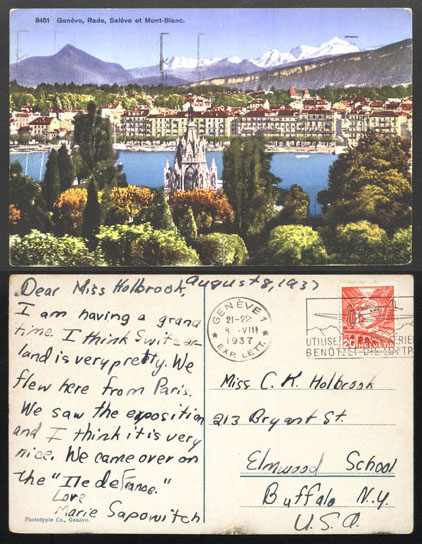 8451 Genève, Rade, Salève et Mont-Blanc.
Dear Miss Holbrook, August 8, 1937
I am having a grand
time. I think Switzer-
land is very pretty. We
flew here from Paris.
We saw the exposition
and I think it is very
nice. We came over on
the "Ile de France."
Love
Marie Sapowitch
Phototypie Co., Genève.
GENÈVE 1
21-22
8. VIII
1937
EXP. LETT.
UTILISEZ
BENÜTZET DIE LUFTP
20 HELVETIA
Miss C. K. Holbrook
213 Bryant St.
Elmwood School
Buffalo N.Y.
U.S.A.